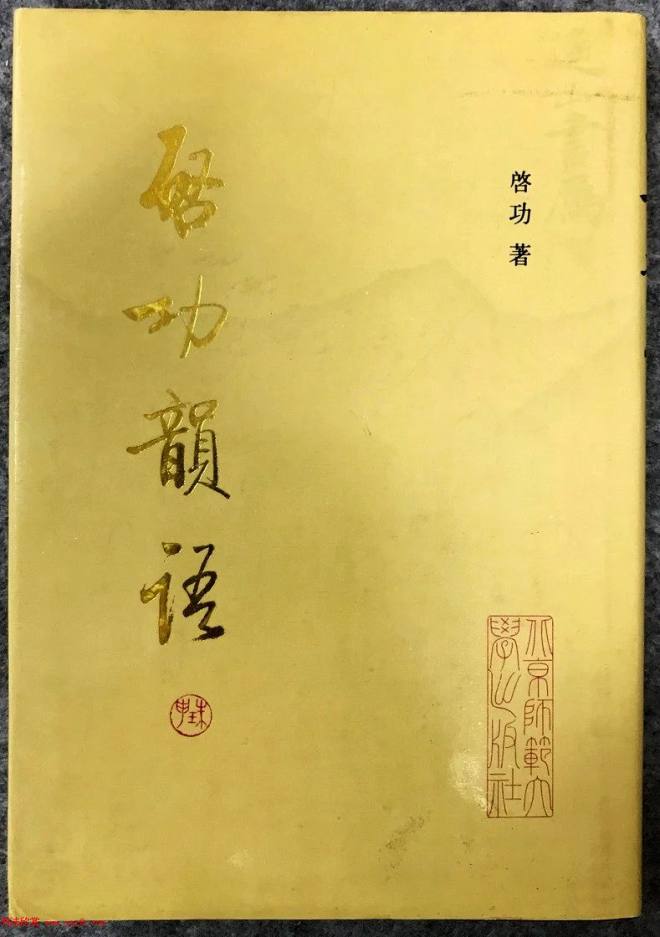 啓功 著
启功韻语
北京師範大
學出版社